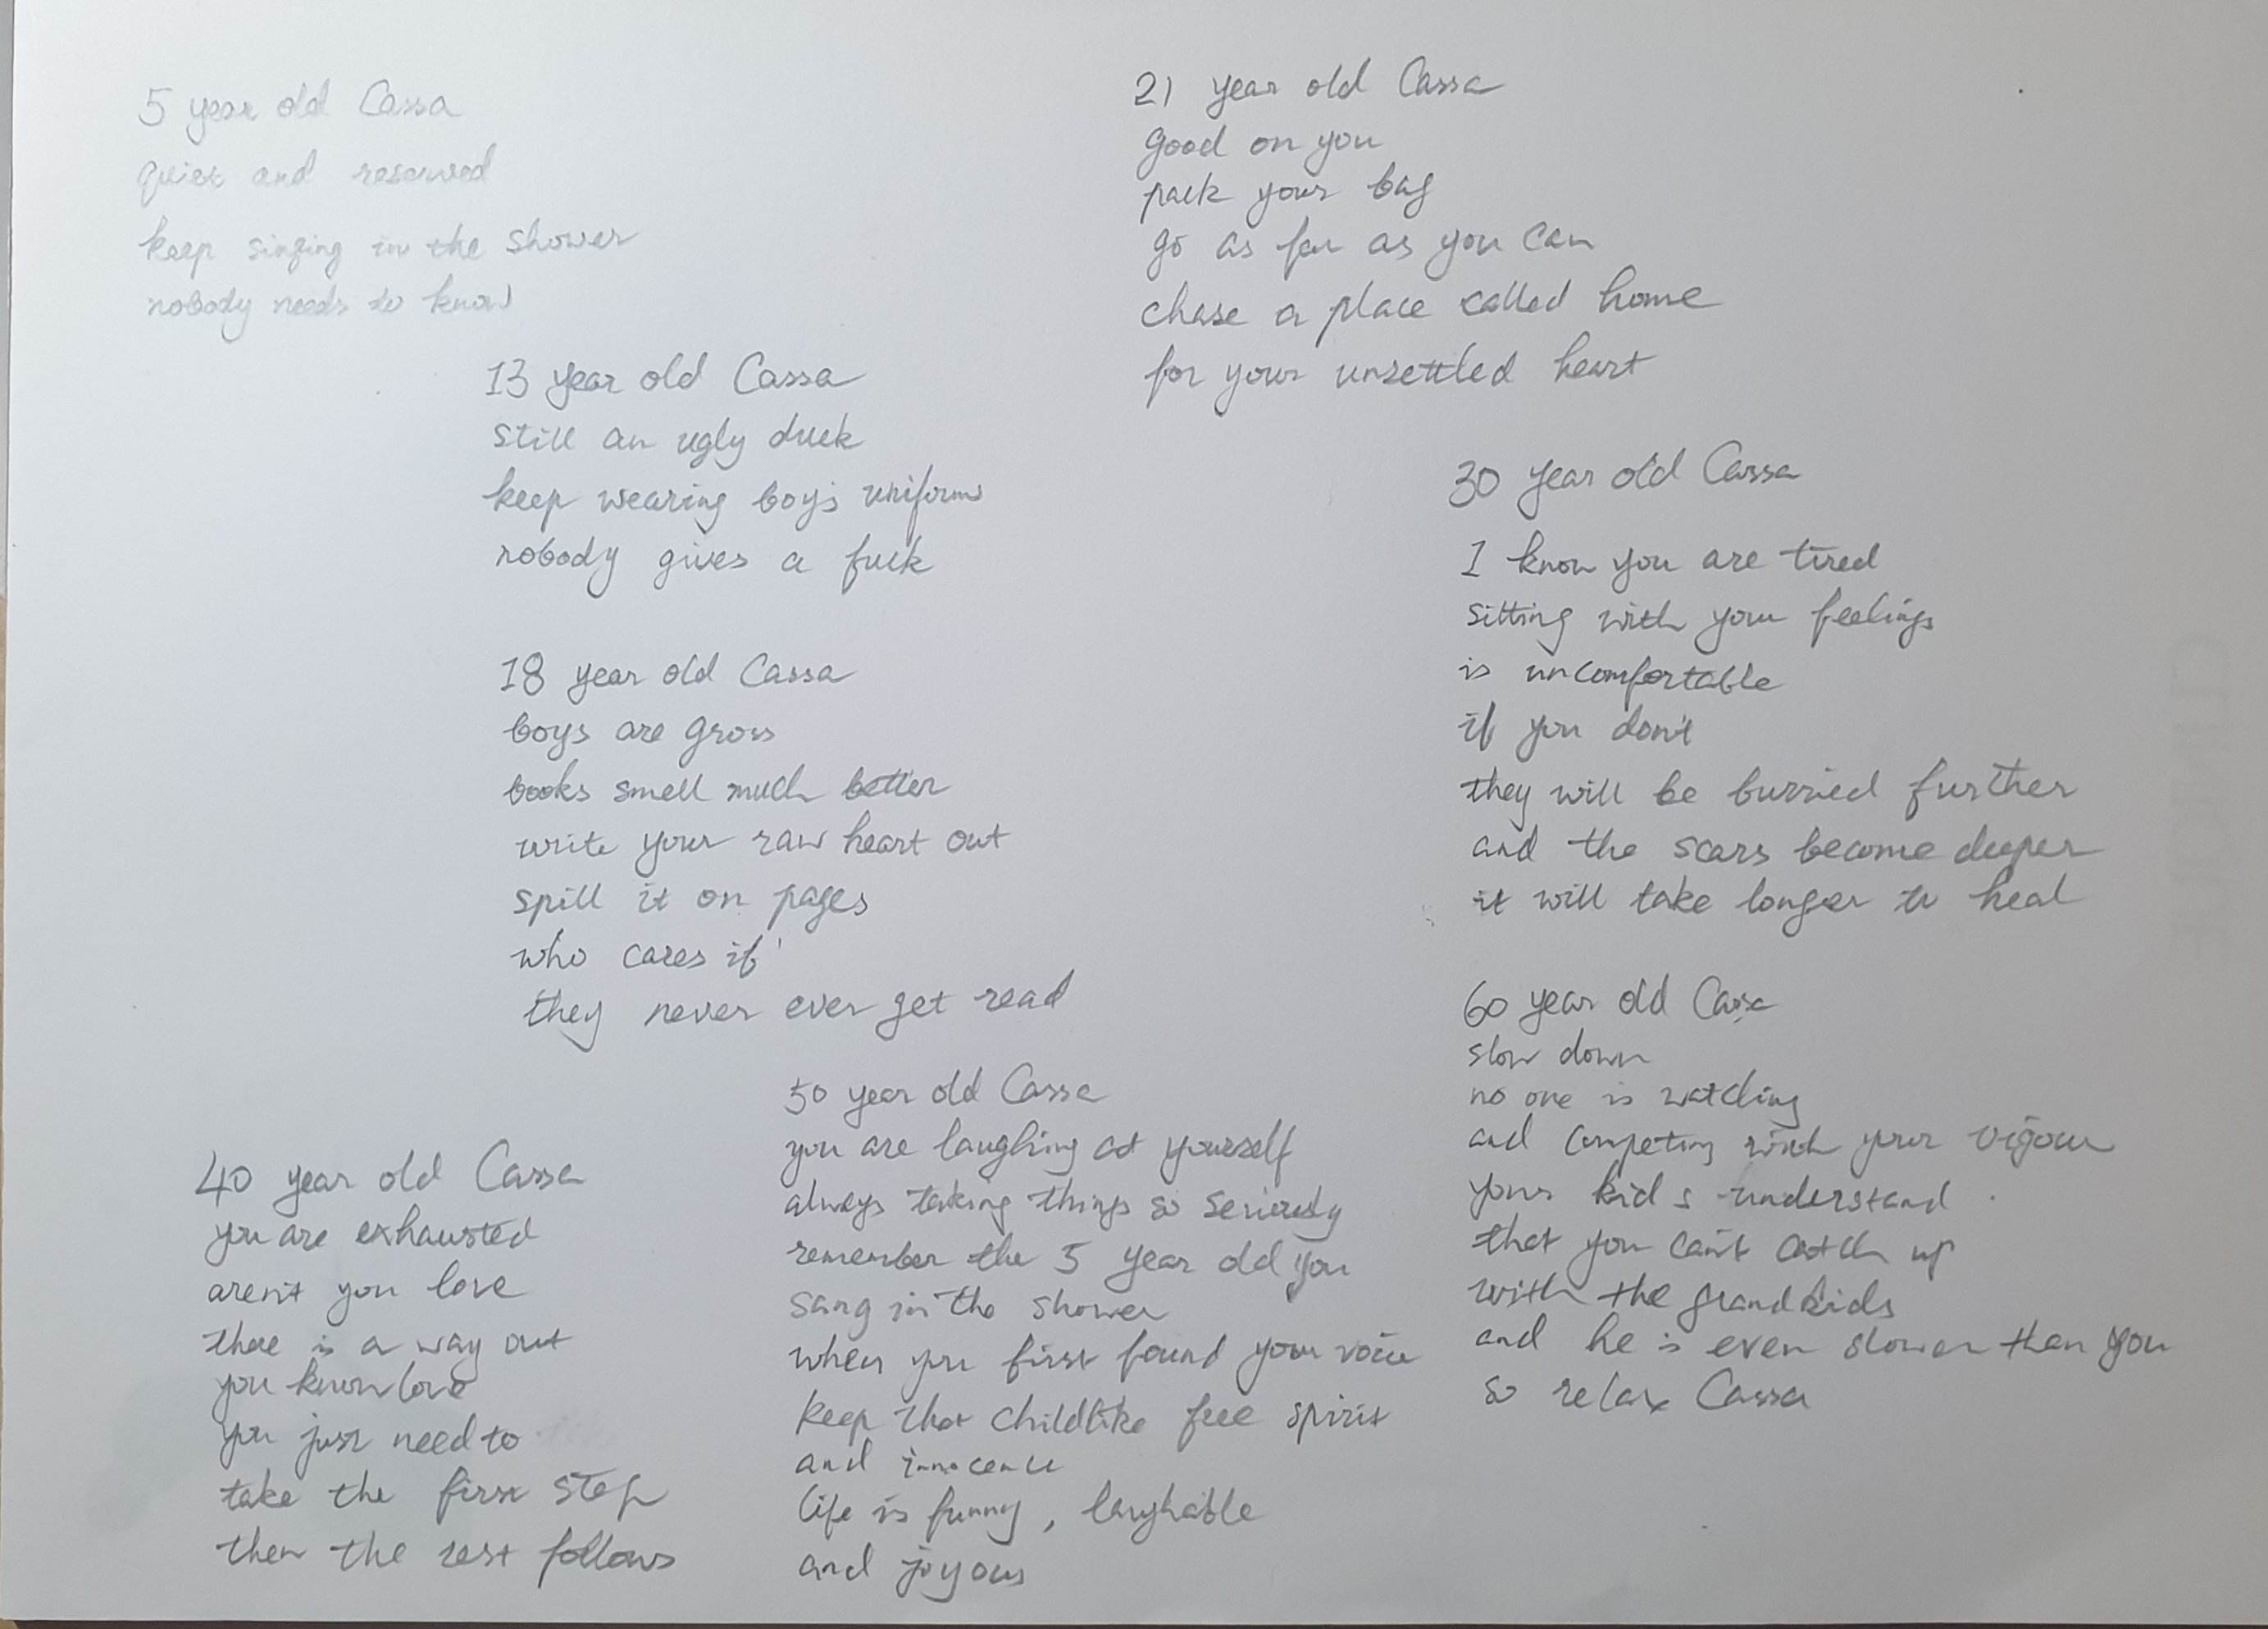 5 year old Cassa
quiet and reserved
keep singing in the shower
nobody needs to know
13 year old Cassa
still an ugly duck
keep wearing boy's uniform
nobody gives a fuck
18 year old Cassa
boys are gross
books smell much better
write your raw heart out
spill it on pages
who cares if
they never ever get read
21 year old Cassa
good on you
pack your bag
go as far as you can
chase a place called home
for your unsettled heart
30 year old Cassa
I know you are tired
sitting with your feelings
is uncomfortable
if you don't
they will be burried further
and the scars become deeper
it will take longer to heal
40 year old Cassa
you are exhausted
aren't you love
there is a way out
you know love
you just need to
take the first step
then the rest follows
50 year old Cassa
you are laughing at yourself
always taking things so seriously
remember the 5 year old you
sang in the shower
when you first found your voice
keep that childlike free spirit
and innocence
life is funny, laughable
and joyous
60 year old Cassa
slow down
no one is watching
and competing with your vigour
your kids understand
that you can't catch up
with the grandkids
and he is even slower than you
so relax Cassa